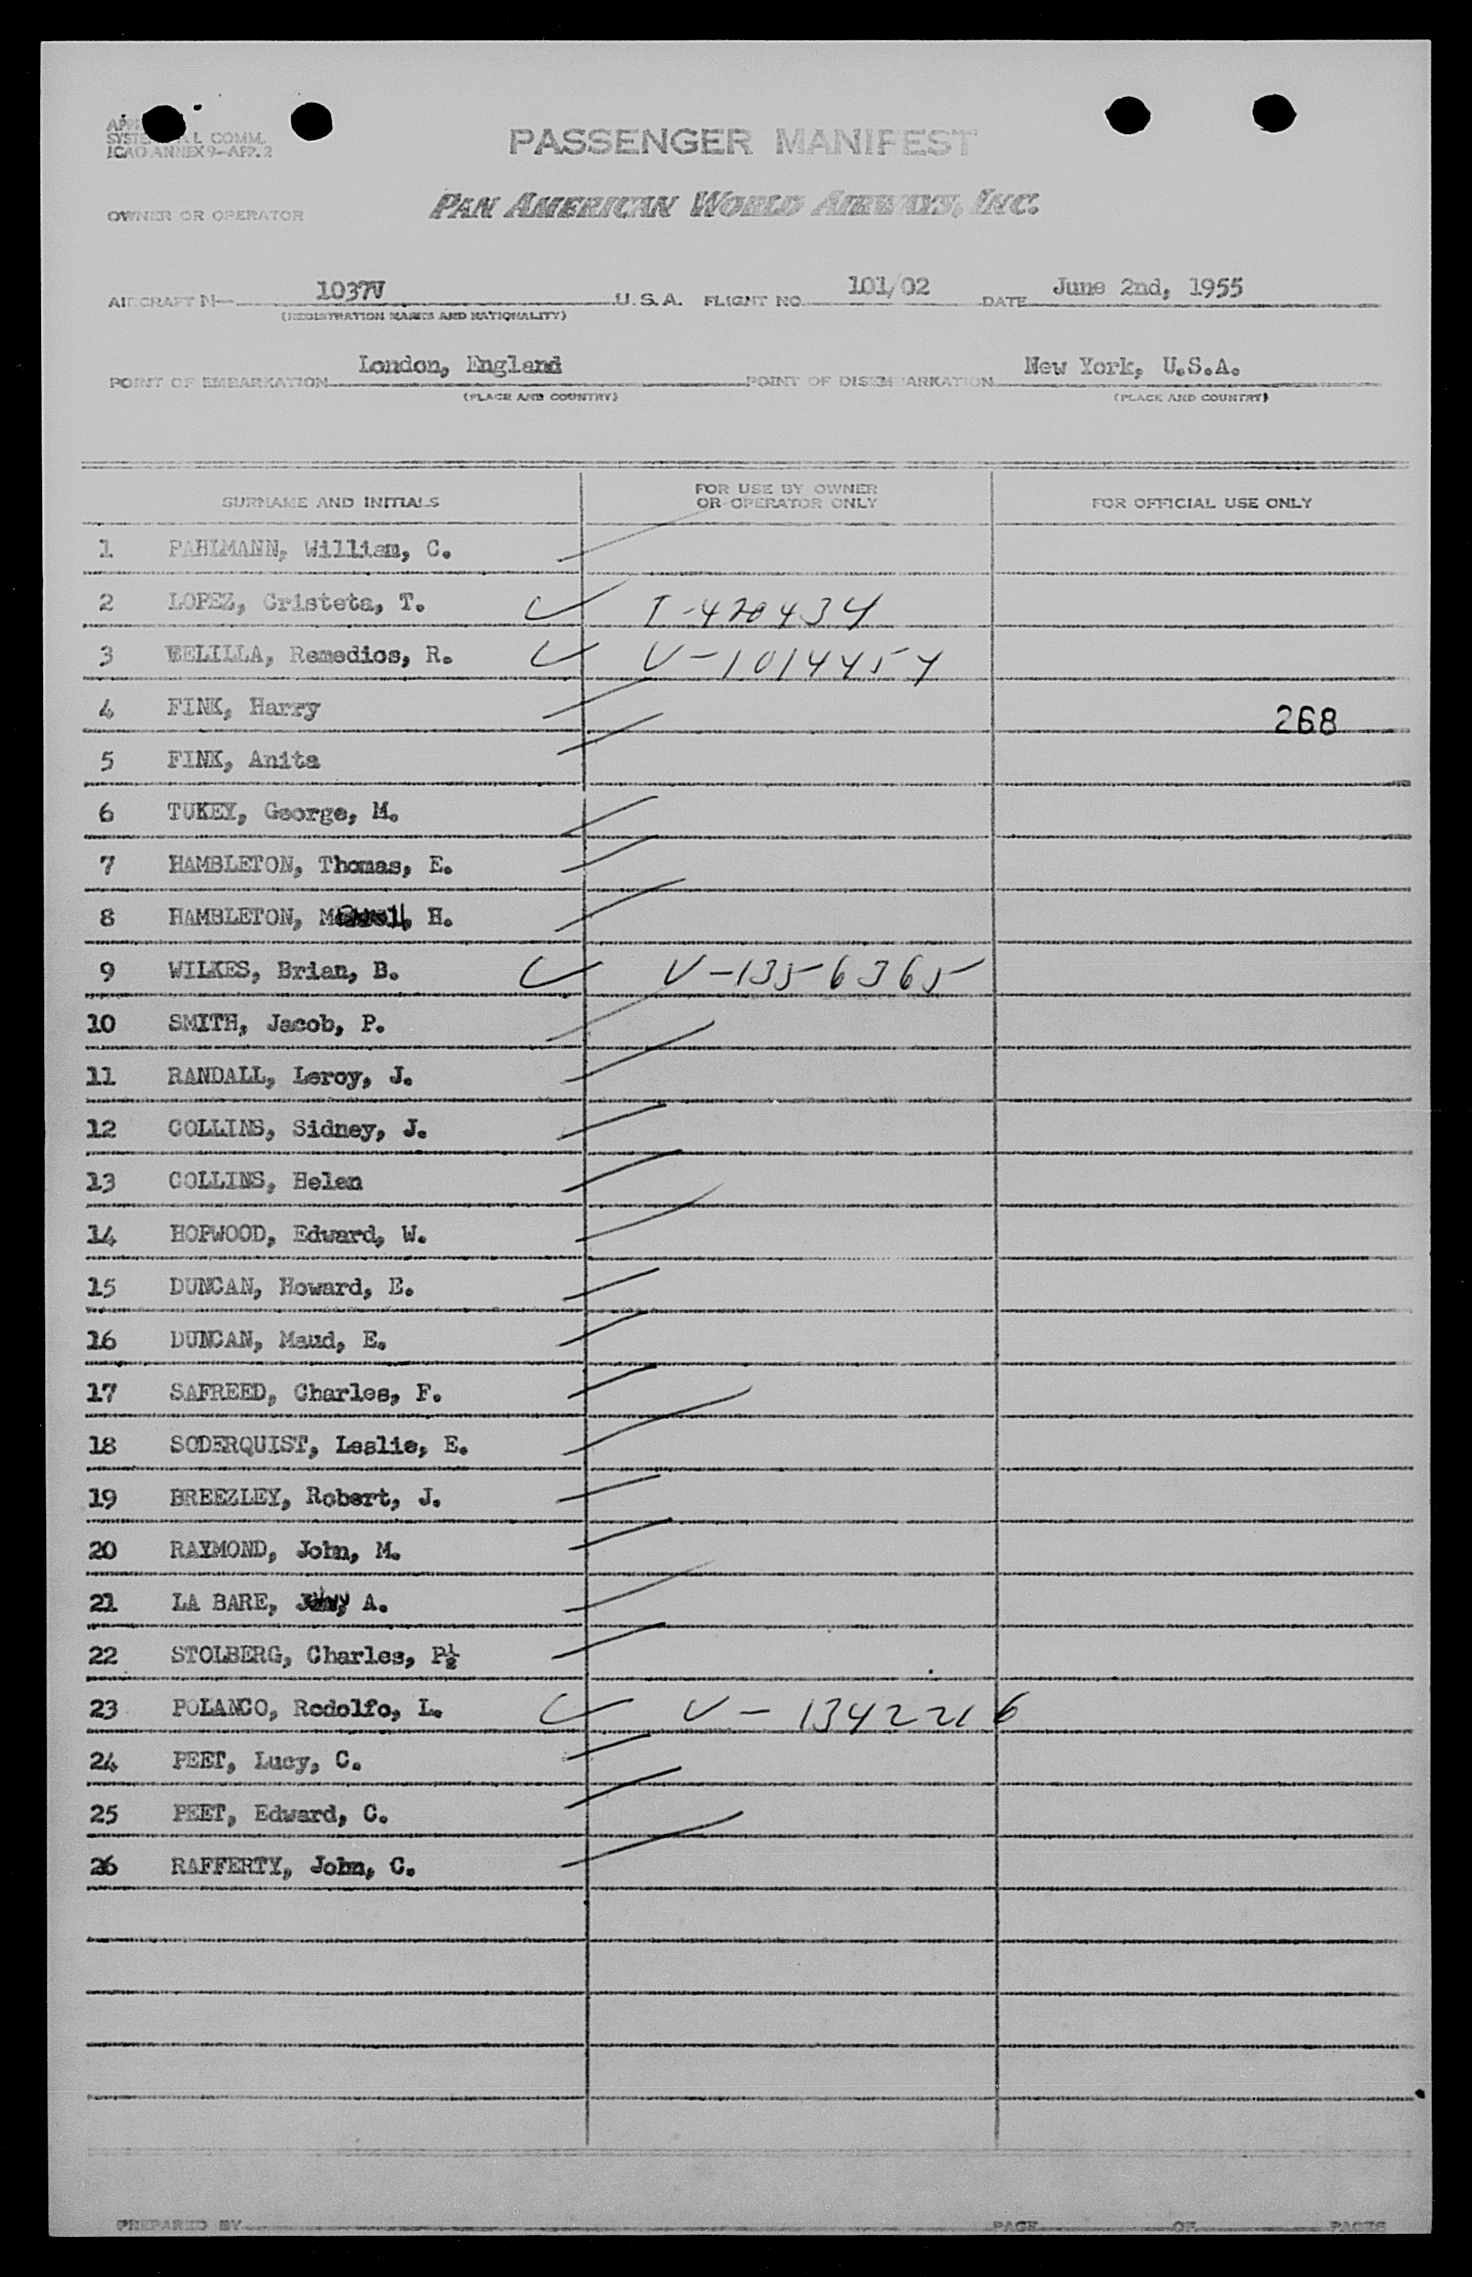 ICAO ANNEX 9-APP. 2
PASSENGER MANIFEST
OWNER OR OPERATOR PAN AMERICAN WORLD AIRWAYS, INC.
AIRCRAFT N— 1037V U.S.A. FLIGHT NO. 101/02 DATE June 2nd, 1955
(REGISTRATION MARKS AND NATIONALITY)
POINT OF EMBARKATION London, England POINT OF DISEMBARKATION New York, U.S.A.
(PLACE AND COUNTRY) (PLACE AND COUNTRY)
SURNAME AND INITIALS FOR USE BY OWNER OR OPERATOR ONLY FOR OFFICIAL USE ONLY
1 PAHLMANN, William, C.
2 LOPEZ, Cristeta, T. T-420434
3 BELILLA, Remedios, R. V-1014454
4 FINK, Harry 268
5 FINK, Anita
6 TUKEY, George, M.
7 HAMBLETON, Thomas, E.
8 HAMBLETON, H.
9 WILKES, Brian, B. V-1356365
10 SMITH, Jacob, P.
11 RANDALL, Leroy, J.
12 COLLINS, Sidney, J.
13 COLLINS, Helen
14 HOPWOOD, Edward, W.
15 DUNCAN, Howard, E.
16 DUNCAN, Maud, E.
17 SAFREED, Charles, F.
18 SODERQUIST, Leslie, E.
19 BREEZLEY, Robert, J.
20 RAYMOND, John, M.
21 LA BARE, A.
22 STOLBERG, Charles, P½
23 POLANCO, Rodolfo, L. V-1342216
24 PEET, Lucy, C.
25 PEET, Edward, C.
26 RAFFERTY, John, C.
PREPARED BY PAGE OF PAGES